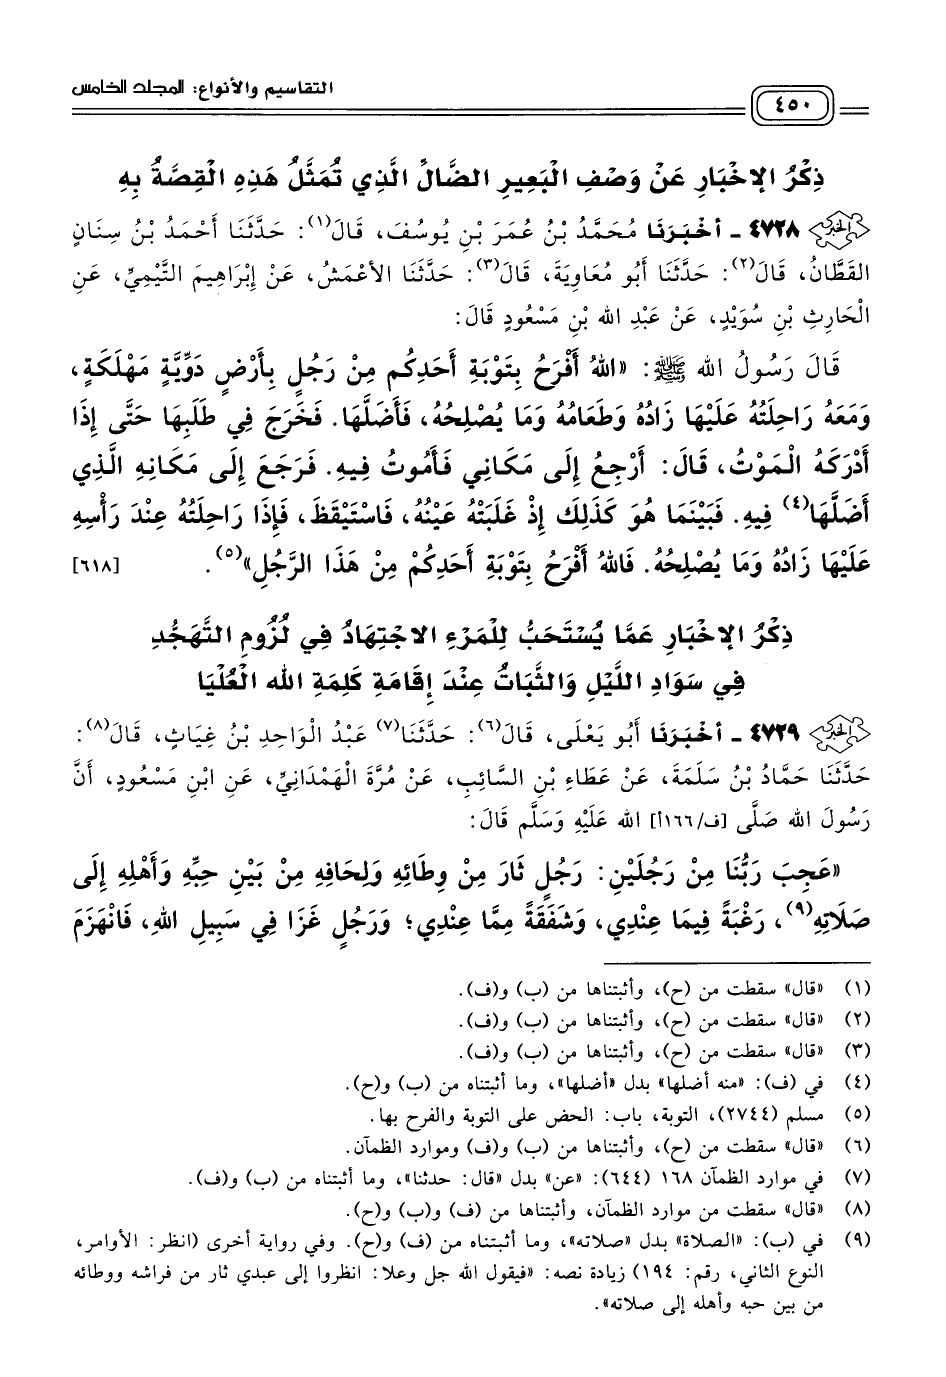 التقاسيم والأنواع: المجلد الخامس
٤٥٠
ذِكْرُ الإِخْبَارِ عَنْ وَصْفِ الْبَعِيرِ الضَّالِّ الَّذِي تُمَثَّلُ هَذِهِ الْقِصَّةُ بِهِ
٤٧٣٨ - أَخْبَرَنَا مُحَمَّدُ بْنُ عُمَرَ بْنِ يُوسُفَ، قَالَ(١): حَدَّثَنَا أَحْمَدُ بْنُ سِنَانٍ
القَطَّانُ، قَالَ(٢): حَدَّثَنَا أَبُو مُعَاوِيَةَ، قَالَ(٣): حَدَّثَنَا الأَعْمَشُ، عَنْ إِبْرَاهِيمَ التَّيْمِيِّ، عَنِ
الْحَارِثِ بْنِ سُوَيْدٍ، عَنْ عَبْدِ الله بْنِ مَسْعُودٍ قَالَ:
قَالَ رَسُولُ الله ﷺ: «اللهُ أَفْرَحُ بِتَوْبَةِ أَحَدِكُم مِنْ رَجُلٍ بِأَرْضٍ دَوِّيَّةٍ مَهْلَكَةٍ،
وَمَعَهُ رَاحِلَتُهُ عَلَيْهَا زَادُهُ وَطَعَامُهُ وَمَا يُصْلِحُهُ، فَأَضَلَّهَا. فَخَرَجَ فِي طَلَبِهَا حَتَّى إِذَا
أَدْرَكَهُ الْمَوْتُ، قَالَ: أَرْجِعُ إِلَى مَكَانِي فَأَمُوتُ فِيهِ. فَرَجَعَ إِلَى مَكَانِهِ الَّذِي
أَضَلَّهَا(٤) فِيهِ. فَبَيْنَمَا هُوَ كَذَلِكَ إِذْ غَلَبَتْهُ عَيْنُهُ، فَاسْتَيْقَظَ، فَإِذَا رَاحِلَتُهُ عِنْدَ رَأْسِهِ
عَلَيْهَا زَادُهُ وَمَا يُصْلِحُهُ. فَاللهُ أَفْرَحُ بِتَوْبَةِ أَحَدِكُمْ مِنْ هَذَا الرَّجُلِ»(٥). [٦١٨]
ذِكْرُ الإِخْبَارِ عَمَّا يُسْتَحَبُّ لِلْمَرْءِ الاجْتِهَادُ فِي لُزُومِ التَّهَجُّدِ
فِي سَوَادِ اللَّيْلِ وَالثَّبَاتُ عِنْدَ إِقَامَةِ كَلِمَةِ الله الْعُلْيَا
٤٧٣٩ - أَخْبَرَنَا أَبُو يَعْلَى، قَالَ(٦): حَدَّثَنَا(٧) عَبْدُ الْوَاحِدِ بْنُ غِيَاثٍ، قَالَ(٨):
حَدَّثَنَا حَمَّادُ بْنُ سَلَمَةَ، عَنْ عَطَاءِ بْنِ السَّائِبِ، عَنْ مُرَّةَ الْهَمْدَانِيِّ، عَنِ ابْنِ مَسْعُودٍ، أَنَّ
رَسُولَ الله صَلَّى [ف/١٦٦أ] الله عَلَيْهِ وَسَلَّم قَالَ:
«عَجِبَ رَبُّنَا مِنْ رَجُلَيْنِ: رَجُلٍ ثَارَ مِنْ وِطَائِهِ وَلِحَافِهِ مِنْ بَيْنِ حِبِّهِ وَأَهْلِهِ إِلَى
صَلَاتِهِ(٩)، رَغْبَةً فِيمَا عِنْدِي، وَشَفَقَةً مِمَّا عِنْدِي؛ وَرَجُلٍ غَزَا فِي سَبِيلِ اللهِ، فَانْهَزَمَ
(١) «قال» سقطت من (ح)، وأثبتناها من (ب) و(ف).
(٢) «قال» سقطت من (ح)، وأثبتناها من (ب) و(ف).
(٣) «قال» سقطت من (ح)، وأثبتناها من (ب) و(ف).
(٤) في (ف): «منه أضلها» بدل «أضلها»، وما أثبتناه من (ب) و(ح).
(٥) مسلم (٢٧٤٤)، التوبة، باب: الحض على التوبة والفرح بها.
(٦) «قال» سقطت من (ح)، وأثبتناها من (ب) و(ف) وموارد الظمآن.
(٧) في موارد الظمآن ١٦٨ (٦٤٤): «عن» بدل «قال: حدثنا»، وما أثبتناه من (ب) و(ف).
(٨) «قال» سقطت من موارد الظمآن، وأثبتناها من (ف) و(ب) و(ح).
(٩) في (ب): «الصلاة» بدل «صلاته»، وما أثبتناه من (ف) و(ح). وفي رواية أخرى (انظر: الأوامر،
النوع الثاني، رقم: ١٩٤) زيادة نصه: «فيقول الله جل وعلا: انظروا إلى عبدي ثار من فراشه ووطائه
من بين حبه وأهله إلى صلاته».